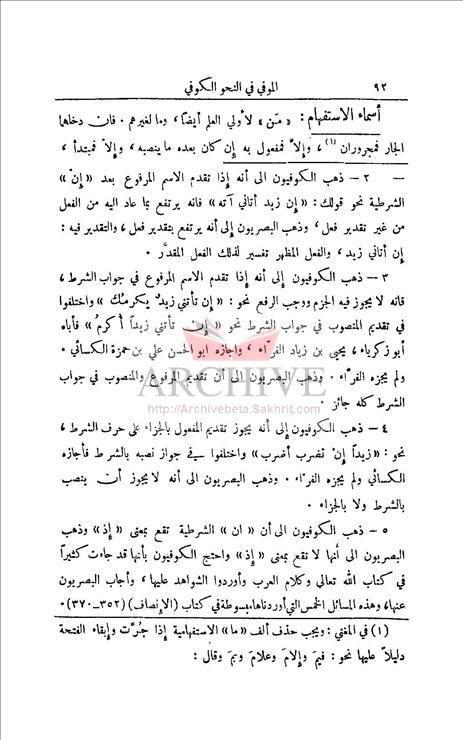 ٩٢ الموفي في النحو الكوفي
أسماء الاستفهام : « مَن » لأولي العلم أيضًا ، وما لغيرهم . فان دخلها
الجار فمجروران (١) ، وإلاَّ فمفعول به إن كان بعده ما ينصبه ، وإلاَّ فمبتدأ ،
— ٢ — ذهب الكوفيون الى أنه إذا تقدم الاسم المرفوع بعد « إنْ »
الشرطية نحو قولك : « إن زيد أتاني آته » فانه يرتفع بما عاد اليه من الفعل
من غير تقدير فعل ، وذهب البصريون إلى أنه يرتفع بتقدير فعل ، والتقدير فيه :
إن أتاني زيد ، والفعل المظهر تفسير لذلك الفعل المقدَّر .
٣ — ذهب الكوفيون إلى أنه إذا تقدم الاسم المرفوع في جواب الشرط ،
فانه لا يجوز فيه الجزم ووجب الرفع نحو : « إن تأتني زيدٌ يكرمُك » واختلفوا
في تقديم المنصوب في جواب الشرط نحو « إن تأتني زيداً أُكرمُ » فأباه
أبو زكرياء ، يحيى بن زياد الفرَّاء ، واجازه ابو الحسن علي بن حمزة الكسائي .
ولم يجزه الفرَّاء . وذهب البصريون الى أن تقديم المرفوع والمنصوب في جواب
الشرط كله جائز .
ARCHIVE
http://Archivebeta.Sakhrit.com
٤ — ذهب الكوفيون إلى أنه يجوز تقديم المفعول بالجزاء على حرف الشرط ،
نحو : « زيداً إنْ تضرب أضرب » واختلفوا في جواز نصبه بالشرط فأجازه
الكسائي ولم يجزه الفرَّاء . وذهب البصريون الى أنه لا يجوز أن ينصب
بالشرط ولا بالجزاء .
٥ — ذهب الكوفيون الى أن « ان » الشرطية تقع بمعنى « إذ » وذهب
البصريون الى أنها لا تقع بمعنى « إذ » واحتج الكوفيون بأنها قد جاءت كثيراً
في كتاب الله تعالى وكلام العرب وأوردوا الشواهد عليها ، وأجاب البصريون
عنها ، وهذه المسائل الخمس التي أوردناها مبسوطة في كتاب (الإنصاف) (٣٥٢-٣٧٠) .
(١) في المغني : ويجب حذف ألف « ما » الاستفهامية إذا جُرَّت وإبقاء الفتحة
دليلاً عليها نحو : فيمَ وإلامَ وعلامَ وبمَ وقال :